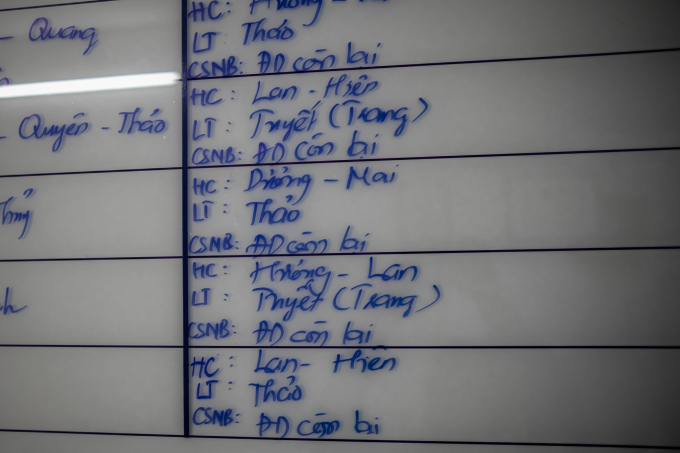 - Quang
HC: Hương -
LT Thảo
CSNB: ĐD còn lại
- Quyên - Thảo
HC: Lan - Hiên
LT: Tuyết (Trang)
CSNB: ĐD còn lại
Thuỷ
HC: Dương - Mai
LT: Thảo
CSNB: ĐD còn lại
HC: Hương - Lan
LT: Tuyết (Trang)
CSNB: ĐD còn lại
HC: Lan - Hiên
LT: Thảo
CSNB: ĐD còn lại